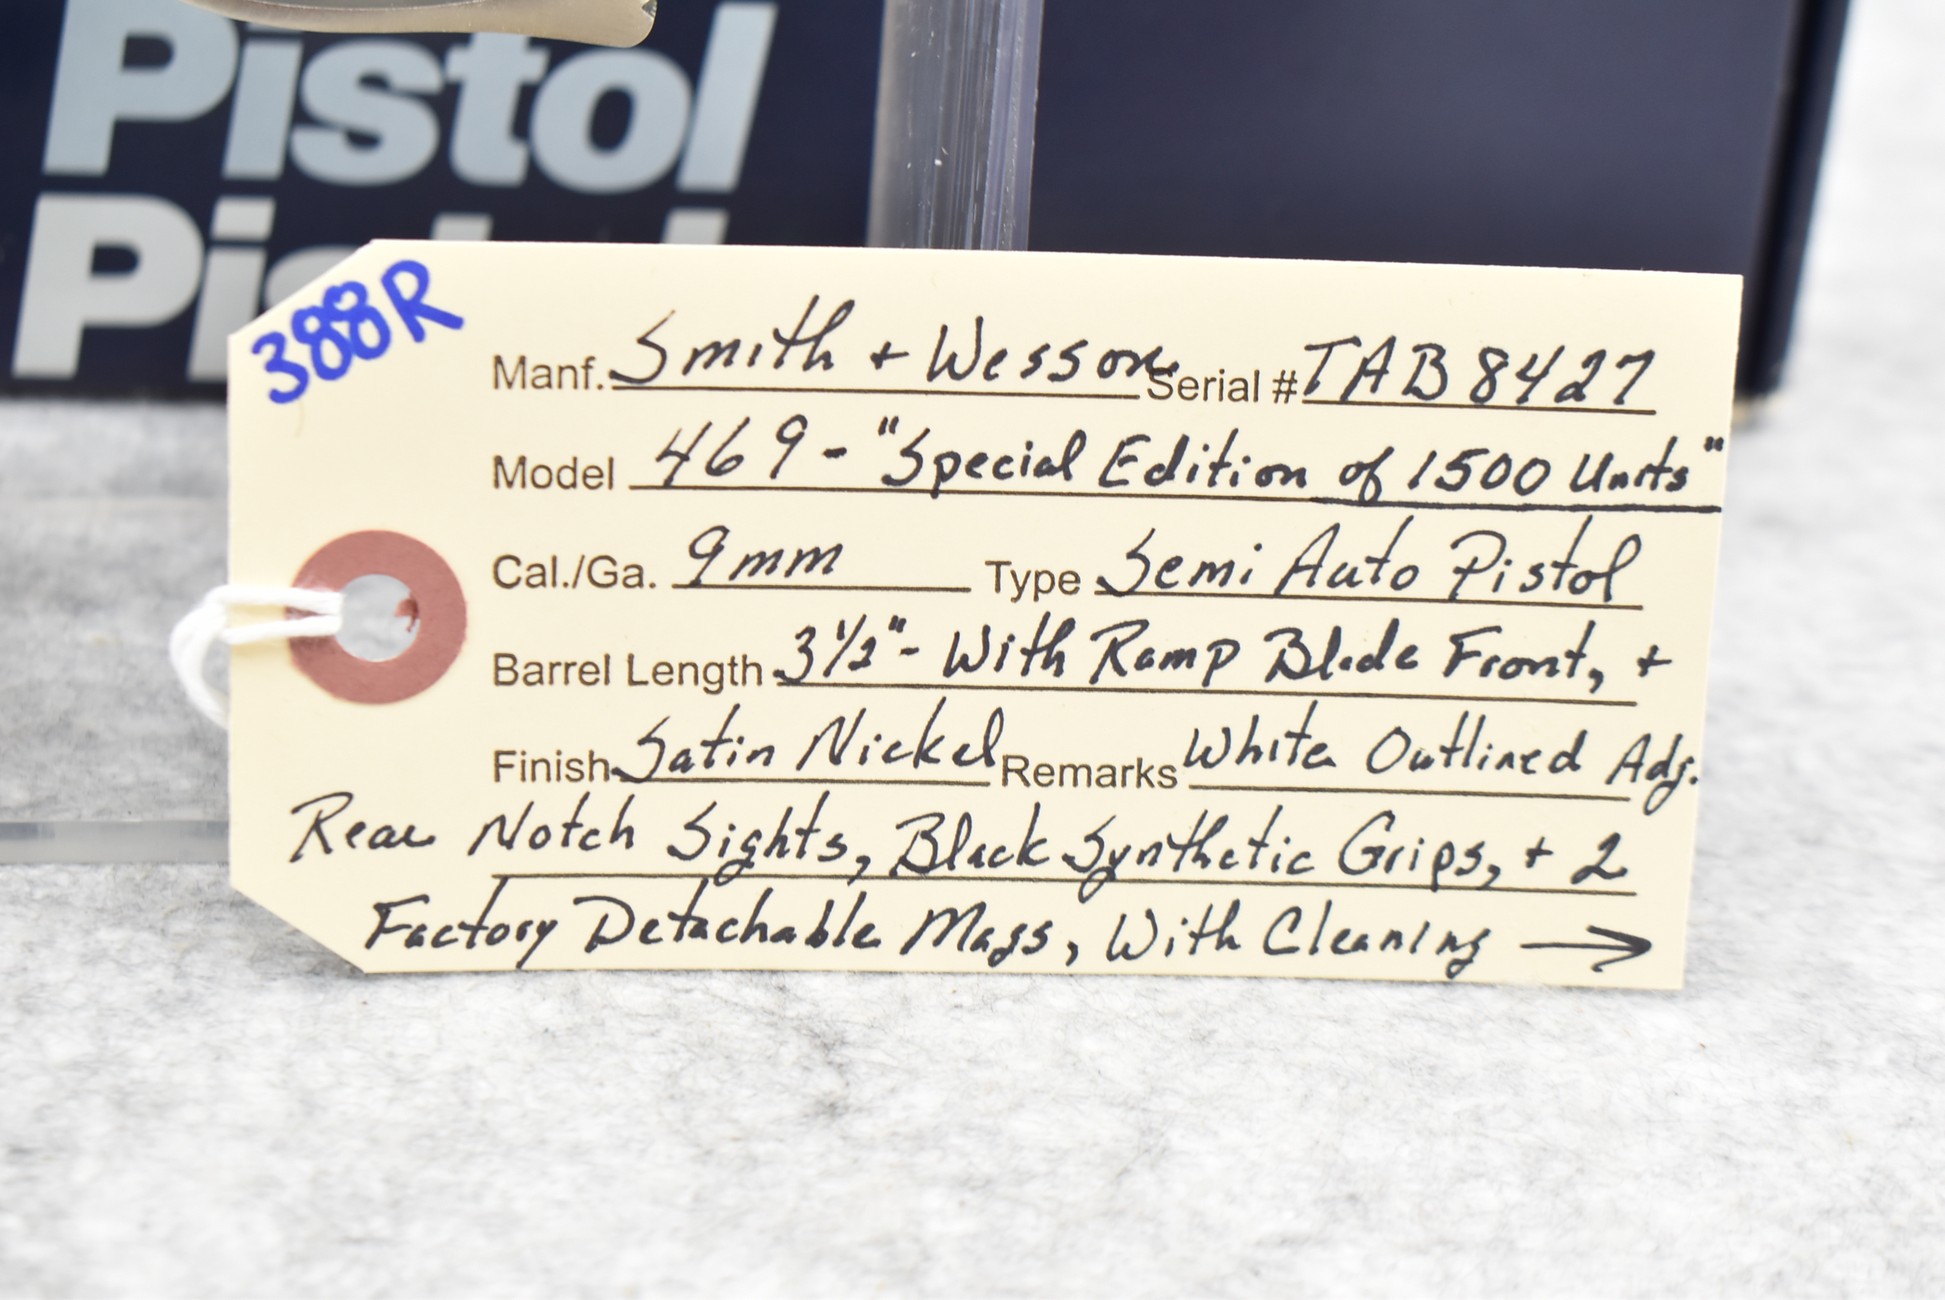 Pistol
Pistol
388R
Manf. Smith + Wesson Serial # TAB8427
Model 469 - "Special Edition of 1500 Units"
Cal./Ga. 9mm Type Semi Auto Pistol
Barrel Length 3 1/2" - With Ramp Blade Front, +
Finish Satin Nickel Remarks White Outlined Adj.
Rear Notch Sights, Black Synthetic Grips, + 2
Factory Detachable Mags, With Cleaning →